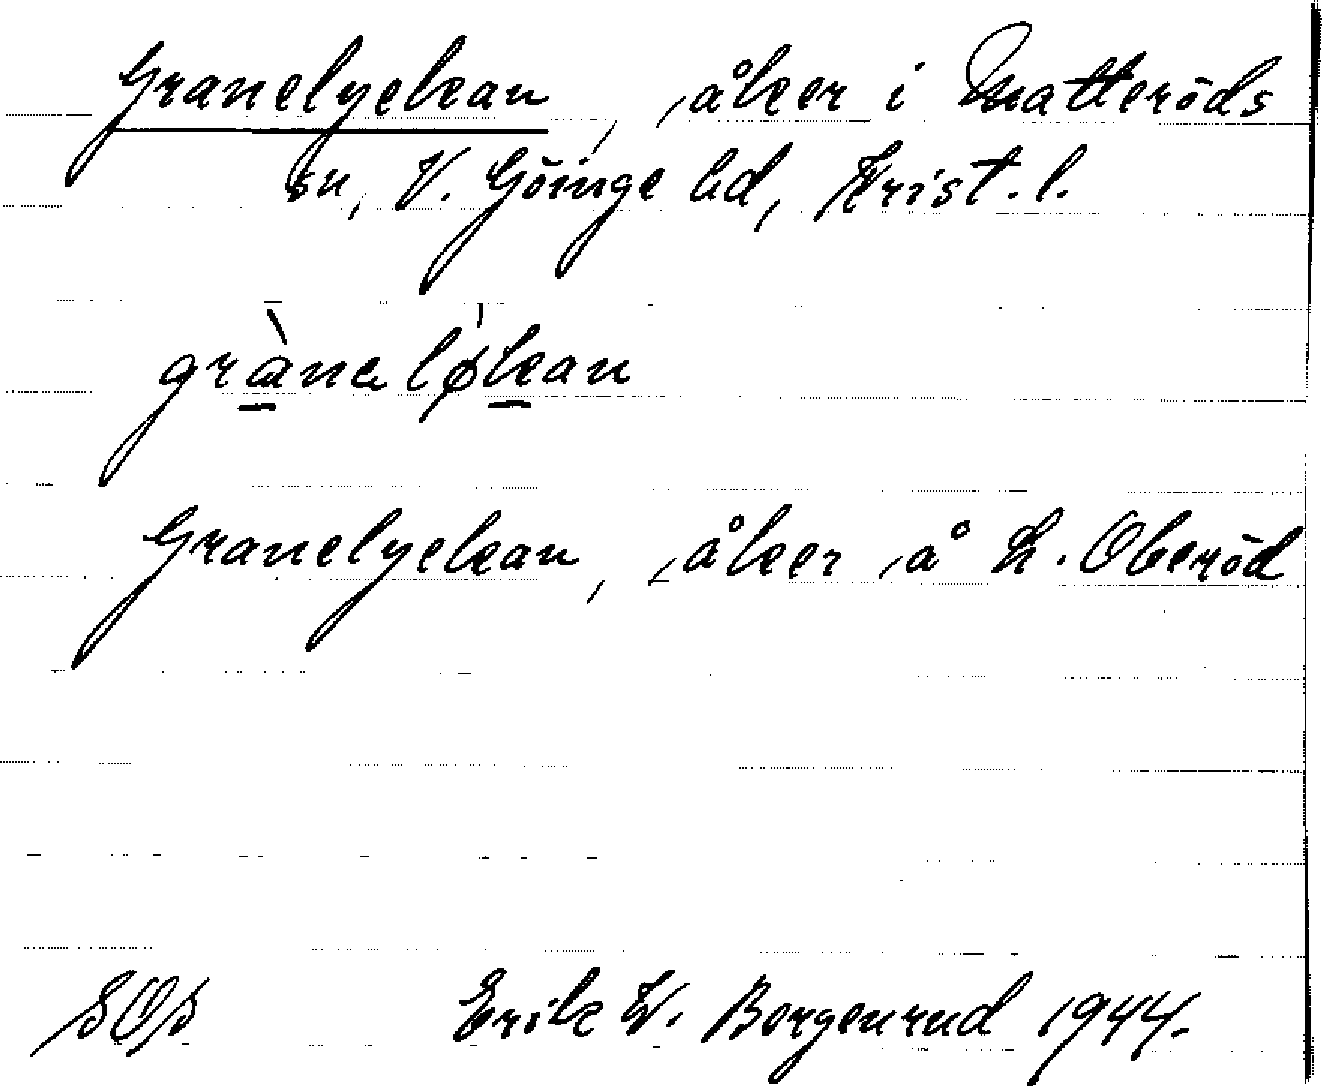 Granelyckan, åker i Matteröds
sn, V. Göinge hd, Krist. l.
grànaløkan
Granelyckan, åker å L. Oberöd
SOS Erik W. Borgenrud 1944.